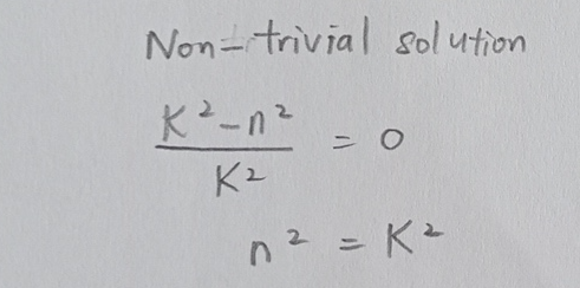 Non-trivial solution
\frac{K^2-n^2}{K^2} = 0
n^2 = K^2